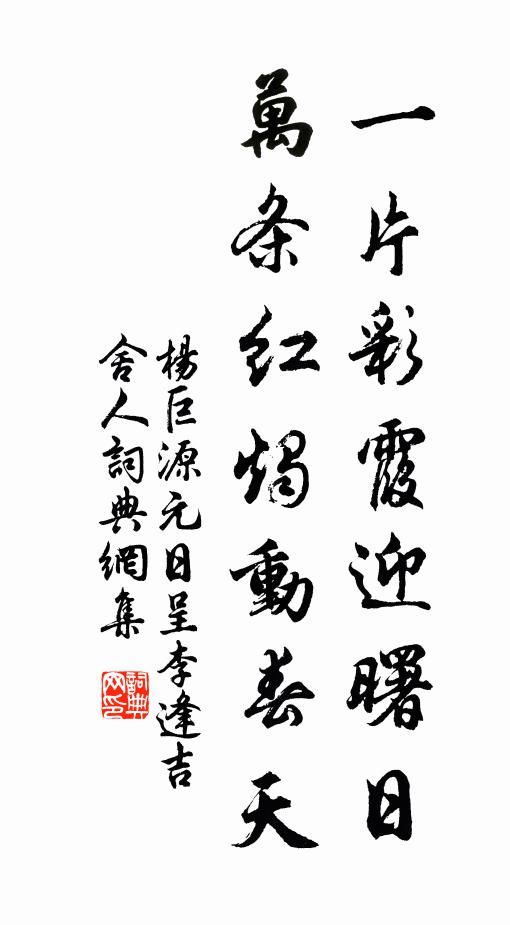 一片彩霞迎曙日
萬条红燭動春天
楊巨源元日呈李逢吉
舍人詞典網集
詞典网印